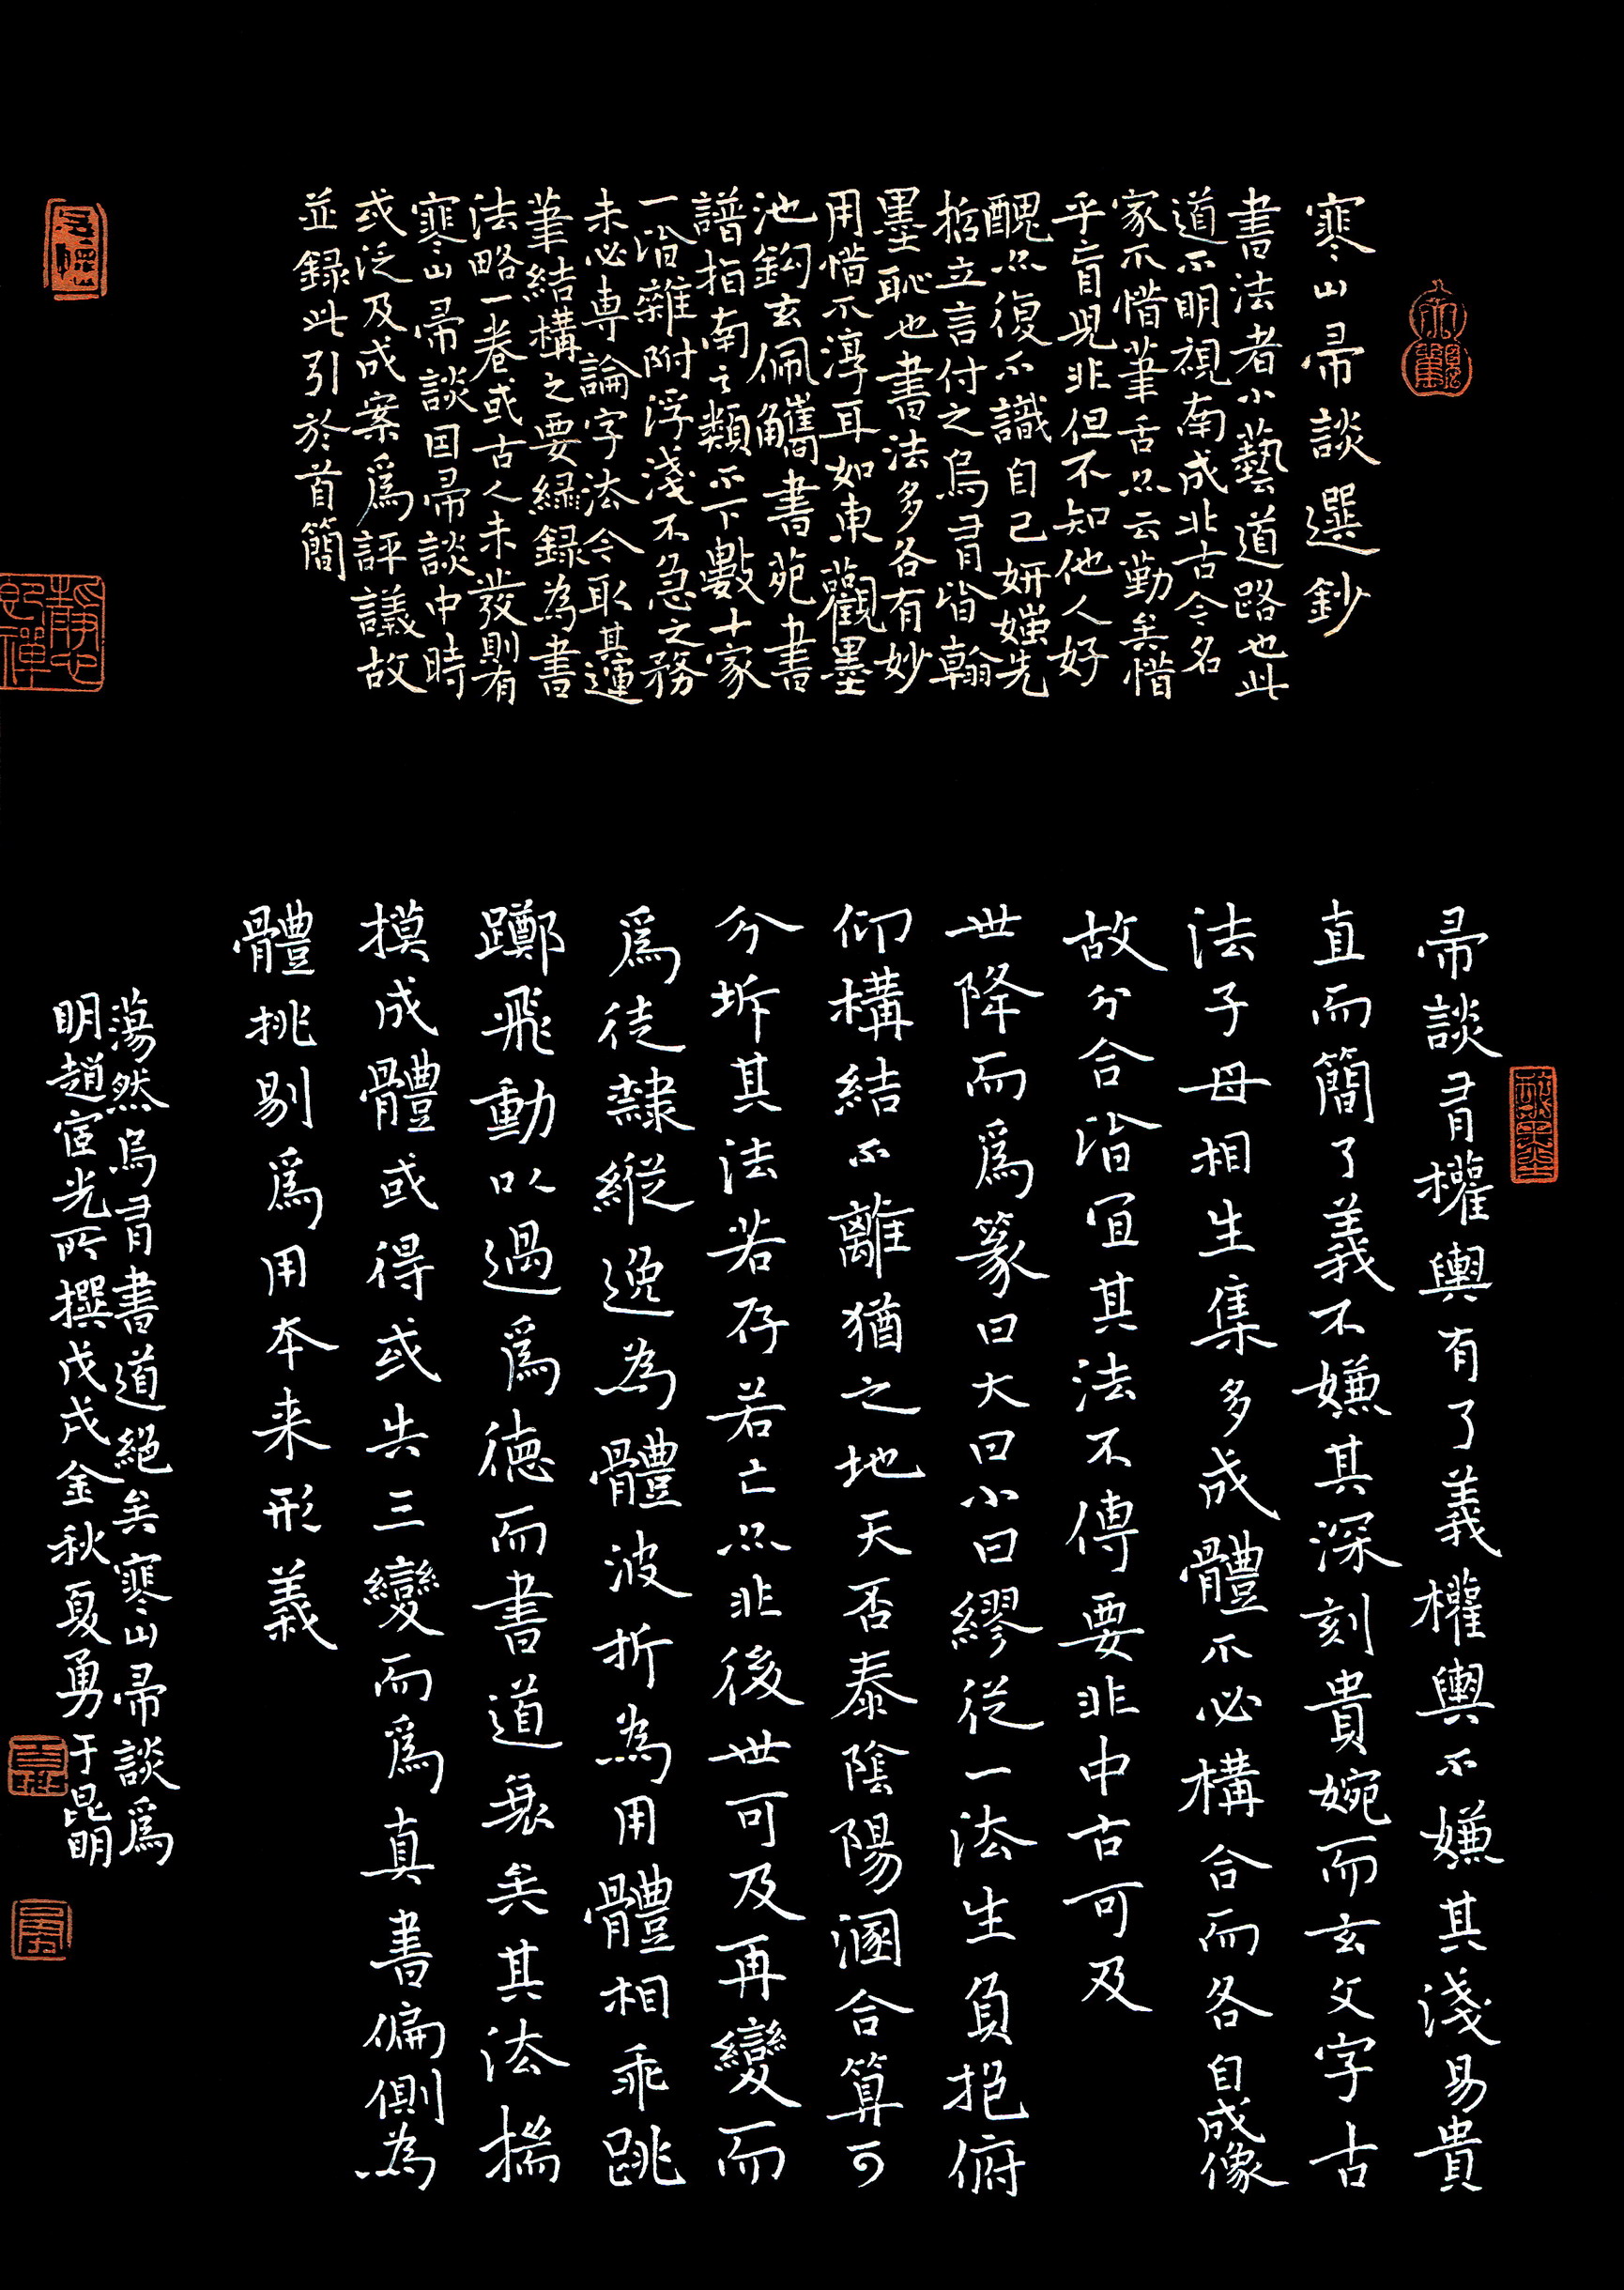 寒山帚談選鈔
書法者小藝道路也此
道不明視南成北古今名
家不惜筆舌亦云勤矣惜
乎盲見非但不知他人好
醜亦復不識自己妍媸先
哲立言付之烏有皆翰
墨恥也書法多各有妙
用惜不淳耳如東觀墨
池鈎玄佩觿書苑書
譜指南之類不下數十家
一皆雜附浮淺不急之務
未必專論字法今取其運
筆結構之要緝錄為書
法略一卷或古人未發則有
寒山帚談因帚談中時
或泛及成案爲評議故
並録此引於首簡
帚談有權輿有了義權輿不嫌其淺易貴
直而簡了義不嫌其深刻貴婉而玄文字古
法子母相生集多成體不必構合而各自成像
故分合皆宜其法不傳要非中古可及
世降而爲篆曰大曰小曰繆從一法生負抱俯
仰構結不離猶之地天否泰陰陽溷合算可
分坼其法若存若亡亦非後世可及再變而
爲徒隸縱逸為體波折為用體相乖跳
躑飛動以過爲德而書道衰矣其法揣
摸成體或得或失三變而爲真書偏側為
體挑剔爲用本来形義
蕩然烏有書道絕矣寒山帚談爲
明趙宧光所撰戊戌金秋夏勇于昆明